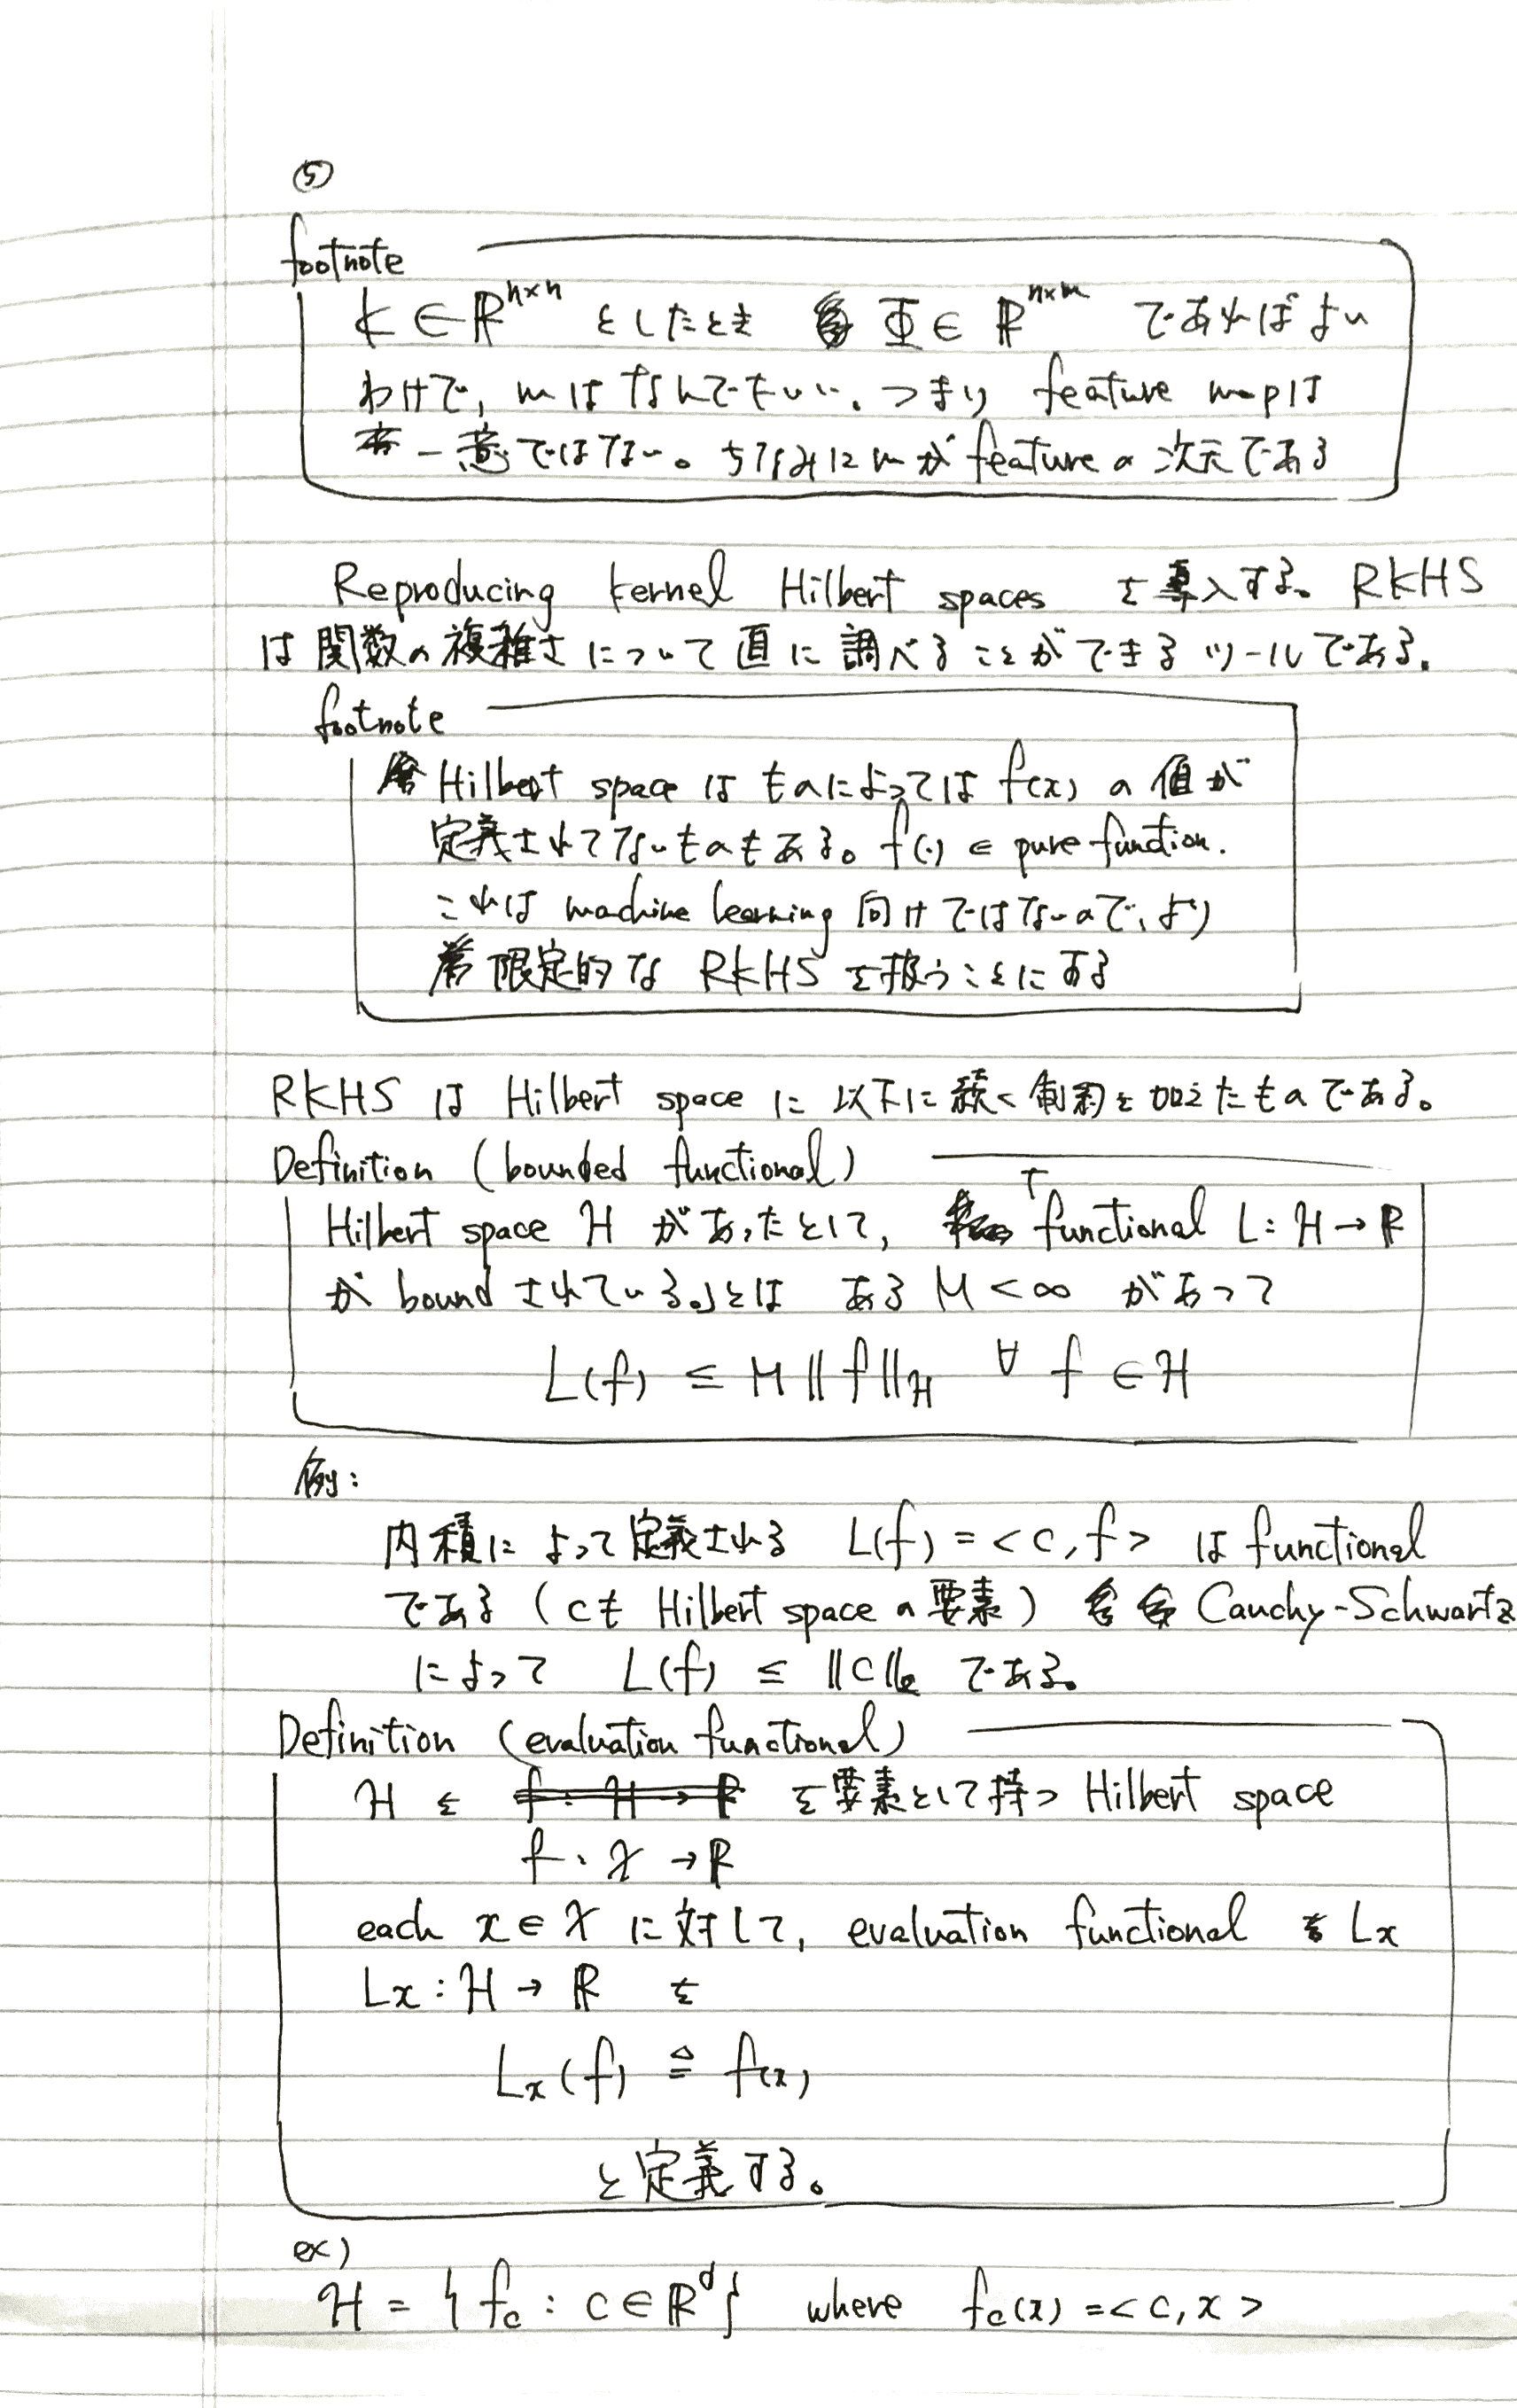 ⑤
footnote
K ∈ ℝ^{n×n} としたとき Φ ∈ ℝ^{n×m} であればよい
わけで, mはなんでもいい。つまり feature mapは
一意ではない。ちなみに m が feature の 次元である
Reproducing kernel Hilbert spaces を導入する。RKHS
は関数の複雑さについて直に調べることができるツールである。
footnote
Hilbert space はものによっては f(x) の値が
定義されてないものもある。f(·) ∈ pure function.
これは machine learning 向けではないので、より
限定的な RKHS を扱うことにする
RKHS は Hilbert space に 以下に続く制約を加えたものである。
Definition (bounded functional)
Hilbert space H があったとして, 「functional L: H → ℝ
が bound されている」とは ある M < ∞ があって
L(f) ≤ M ‖f‖_H ∀ f ∈ H
例:
内積によって定義される L(f) = <c, f> は functional
である (cも Hilbert space の要素) Cauchy-Schwartz
によって L(f) ≤ ‖c‖ である。
Definition (evaluation functional)
H を f: H → ℝ を要素として持つ Hilbert space
f: X → ℝ
each x ∈ X に対して, evaluation functional Lx
Lx: H → ℝ を
Lx(f) ≜ f(x)
と定義する。
ex)
H = { fc : c ∈ ℝ^d } where fc(x) = <c, x>